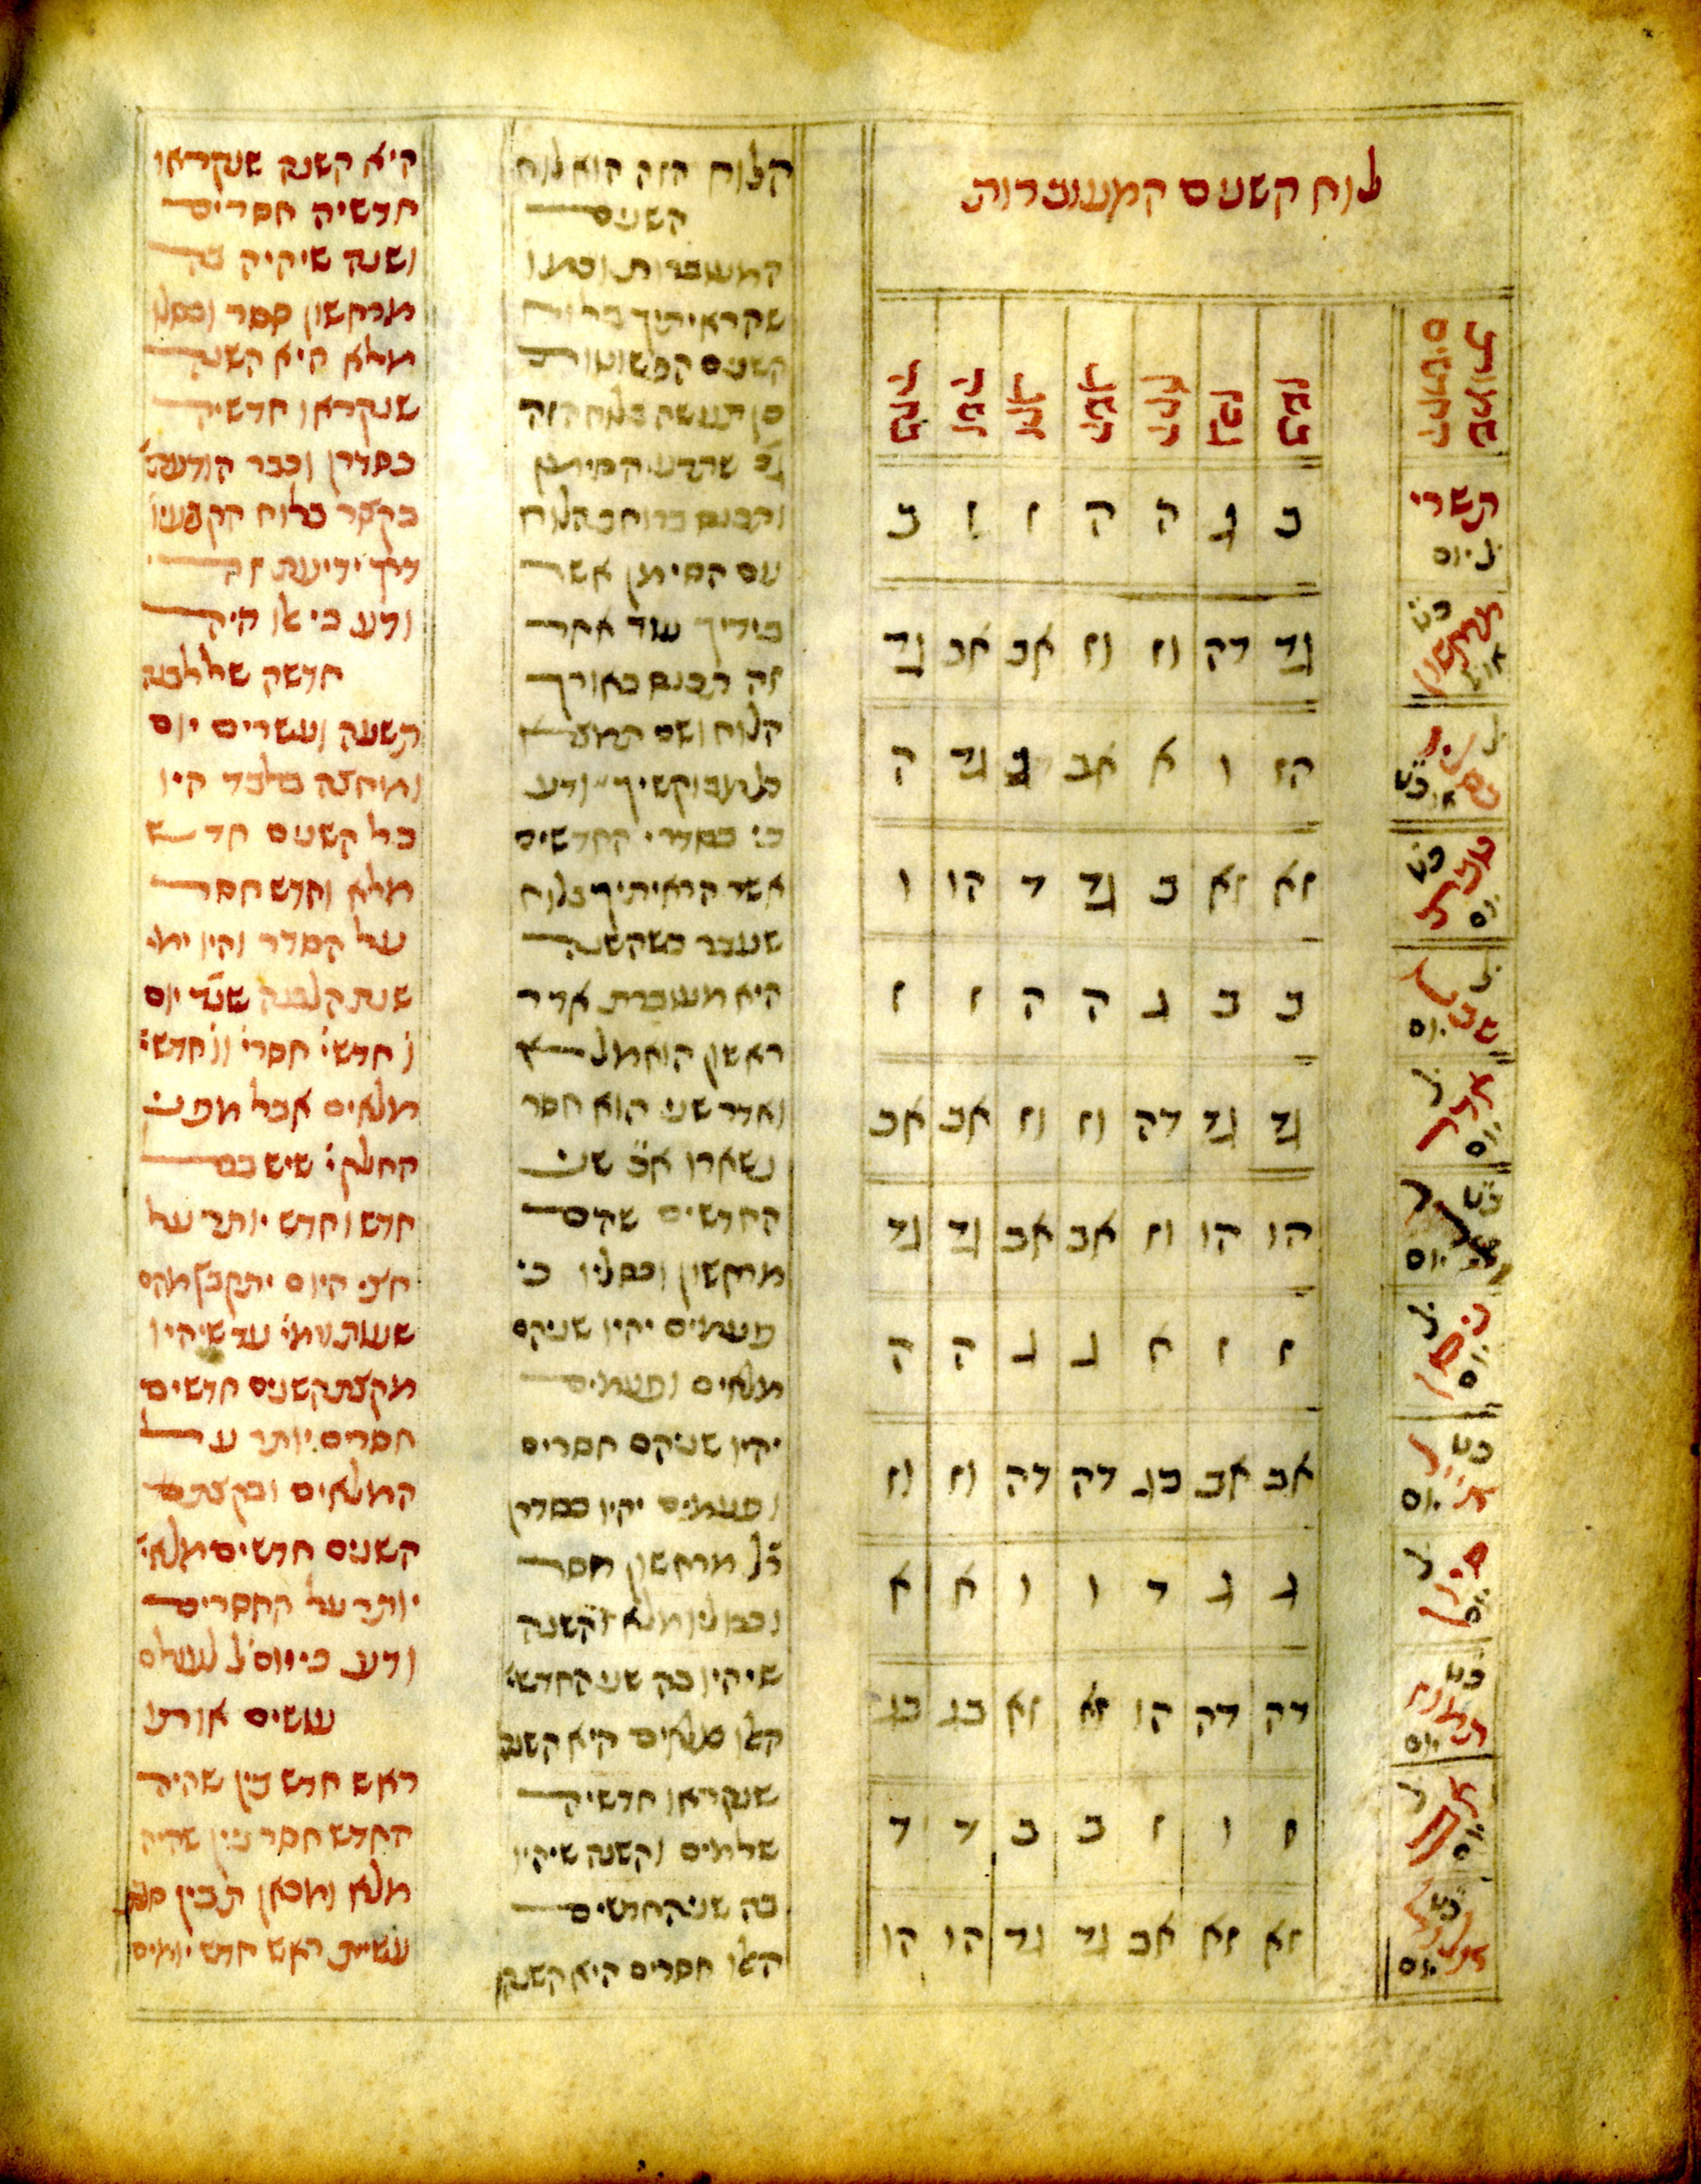 לוח השנים המעוברות
שמות החדשים
תשרי ל יום ב ג ה ה ז ז ב
מרחשון כט או ל גד דה וז וז אב אב גד
כסליו ל או כט הז ו א אב ג גד ה
טבת כט יום זא זא ב גד ד הו ו
שבט ל יום ב ב ג ה ה ז ז
אדר ל יום גד גד דה וז וז אב אב
כט יום הו הו וז אב אב גד גד
ניסן ל יום ז ז א ג ג ה ה
אייר כט יום אב אב בג דה דה וז וז
סיון ל יום ג ג ד ו ו א א
תמוז כט יום דה דה הו זא זא בג בג
אב ל יום ו ו ז ב ב ד ד
אלול כט יום זא זא אב גד גד הו הו
הלוח הזה הוא לוח
השנים
המעוברות וכמו
שהראיתיך בלוח
השנים הפשוטות
כן תעשה בלוח הזה
גם שתדע הסימן
ותכנס ברוחב הלוח
עם הסימן אשר
בידיך עוד אחר
זה תכנס באורך
הלוח ושם תמצא
כל מבוקשיך ודע
כי כסדרי החדשים
אשר הראיתיך בלוח
שעבר כשהשנה
היא מעוברת אדר
ראשון הוא מלא
ואדר שני הוא חסר
נשארו א״כ שני
החדשים שהם
מרחשון וכסליו כי
פעמים יהיו שניהם
מלאים ופעמים
יהיו שניהם חסרים
ופעמים יהיו כסדרן
ר״ל מרחשון חסר
וכסליו מלא והשנה
שיהיו בה שני החדשי׳
האלו מלאים היא השנה
שנקראו חדשיה
שלמים והשנה שיהיו
בה שני החדשים
האלו חסרים היא השנה
היא השנה שנקראו
חדשיה חסרים
ושנה שיהיה בה
מרחשון חסר וכסליו
מלא היא השנה
שנקראו חדשיה
כסדרן וכבר הודעתי׳
דרך ידיעת זה
ודע כי אלו היה
חדשה של לבנה
תשעה ועשרים יום
ומחצה בלבד היו
כל השנים חדש
מלא וחדש חסר
על הסדר והיו ימי
שנת הלבנה שנ״ד יום
ו׳ חדשי׳ חסרי׳ וו׳ חדשי׳
מלאים אבל מפני
החלקי׳ שיש בכל
חדש וחדש יותר על
חצי היום יתקבץ מהם
שעות וימי׳ עד שיהיו
מקצת השנים חדשים
חסרים יותר על
המלאים ובקצתם
השנים חדשים מלאי׳
יותר על החסרים
ודע כי יום ל׳ לעולם
עושים אותו
ראש חדש בין שהיה
החדש חסר בין שהיה
מלא ומכאן תבין
עשיית ראש חדש יומים